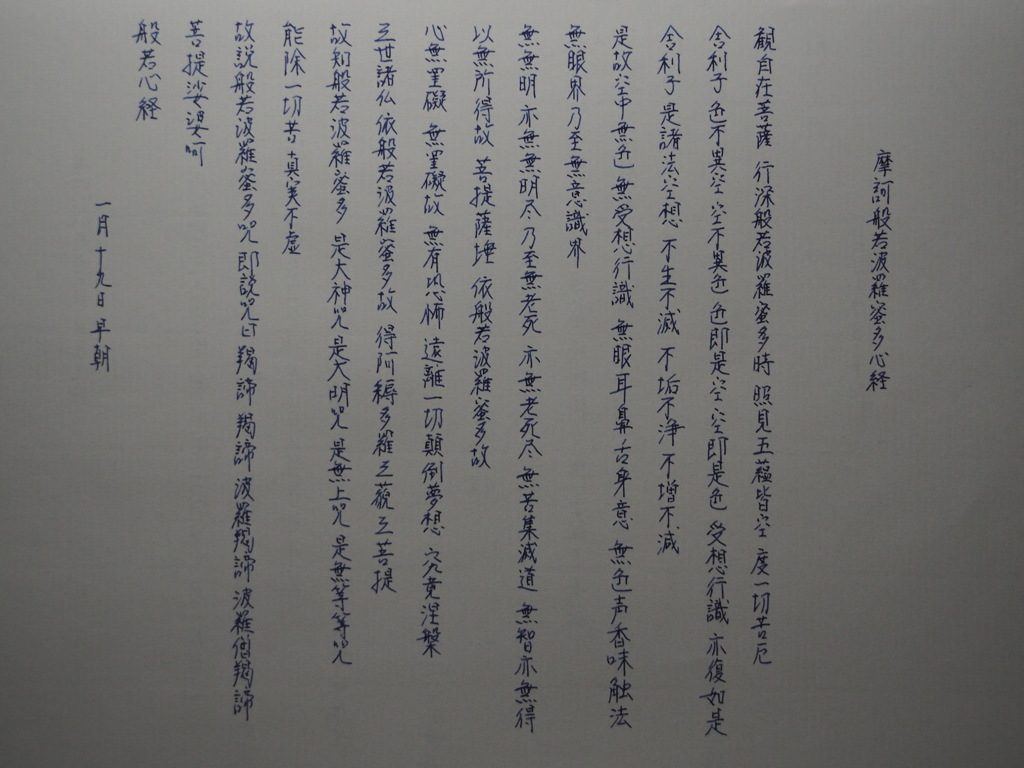 摩訶般若波羅蜜多心経
観自在菩薩 行深般若波羅蜜多時 照見五蘊皆空 度一切苦厄
舎利子 色不異空 空不異色 色即是空 空即是色 受想行識 亦復如是
舎利子 是諸法空想 不生不滅 不垢不浄 不増不減
是故空中 無色 無受想行識 無眼耳鼻舌身意 無色声香味触法
無眼界乃至無意識界
無無明 亦無無明尽 乃至無老死 亦無老死尽 無苦集滅道 無智亦無得
以無所得故 菩提薩埵 依般若波羅蜜多故
心無罣礙 無罣礙故 無有恐怖 遠離一切顛倒夢想 究竟涅槃
三世諸仏 依般若波羅蜜多故 得阿耨多羅三藐三菩提
故知般若波羅蜜多 是大神咒 是大明咒 是無上咒 是無等等咒
能除一切苦 真実不虚
故説般若波羅蜜多咒 即説咒曰 羯諦 羯諦 波羅羯諦 波羅僧羯諦
菩提娑婆訶
般若心経
一月十九日 早朝